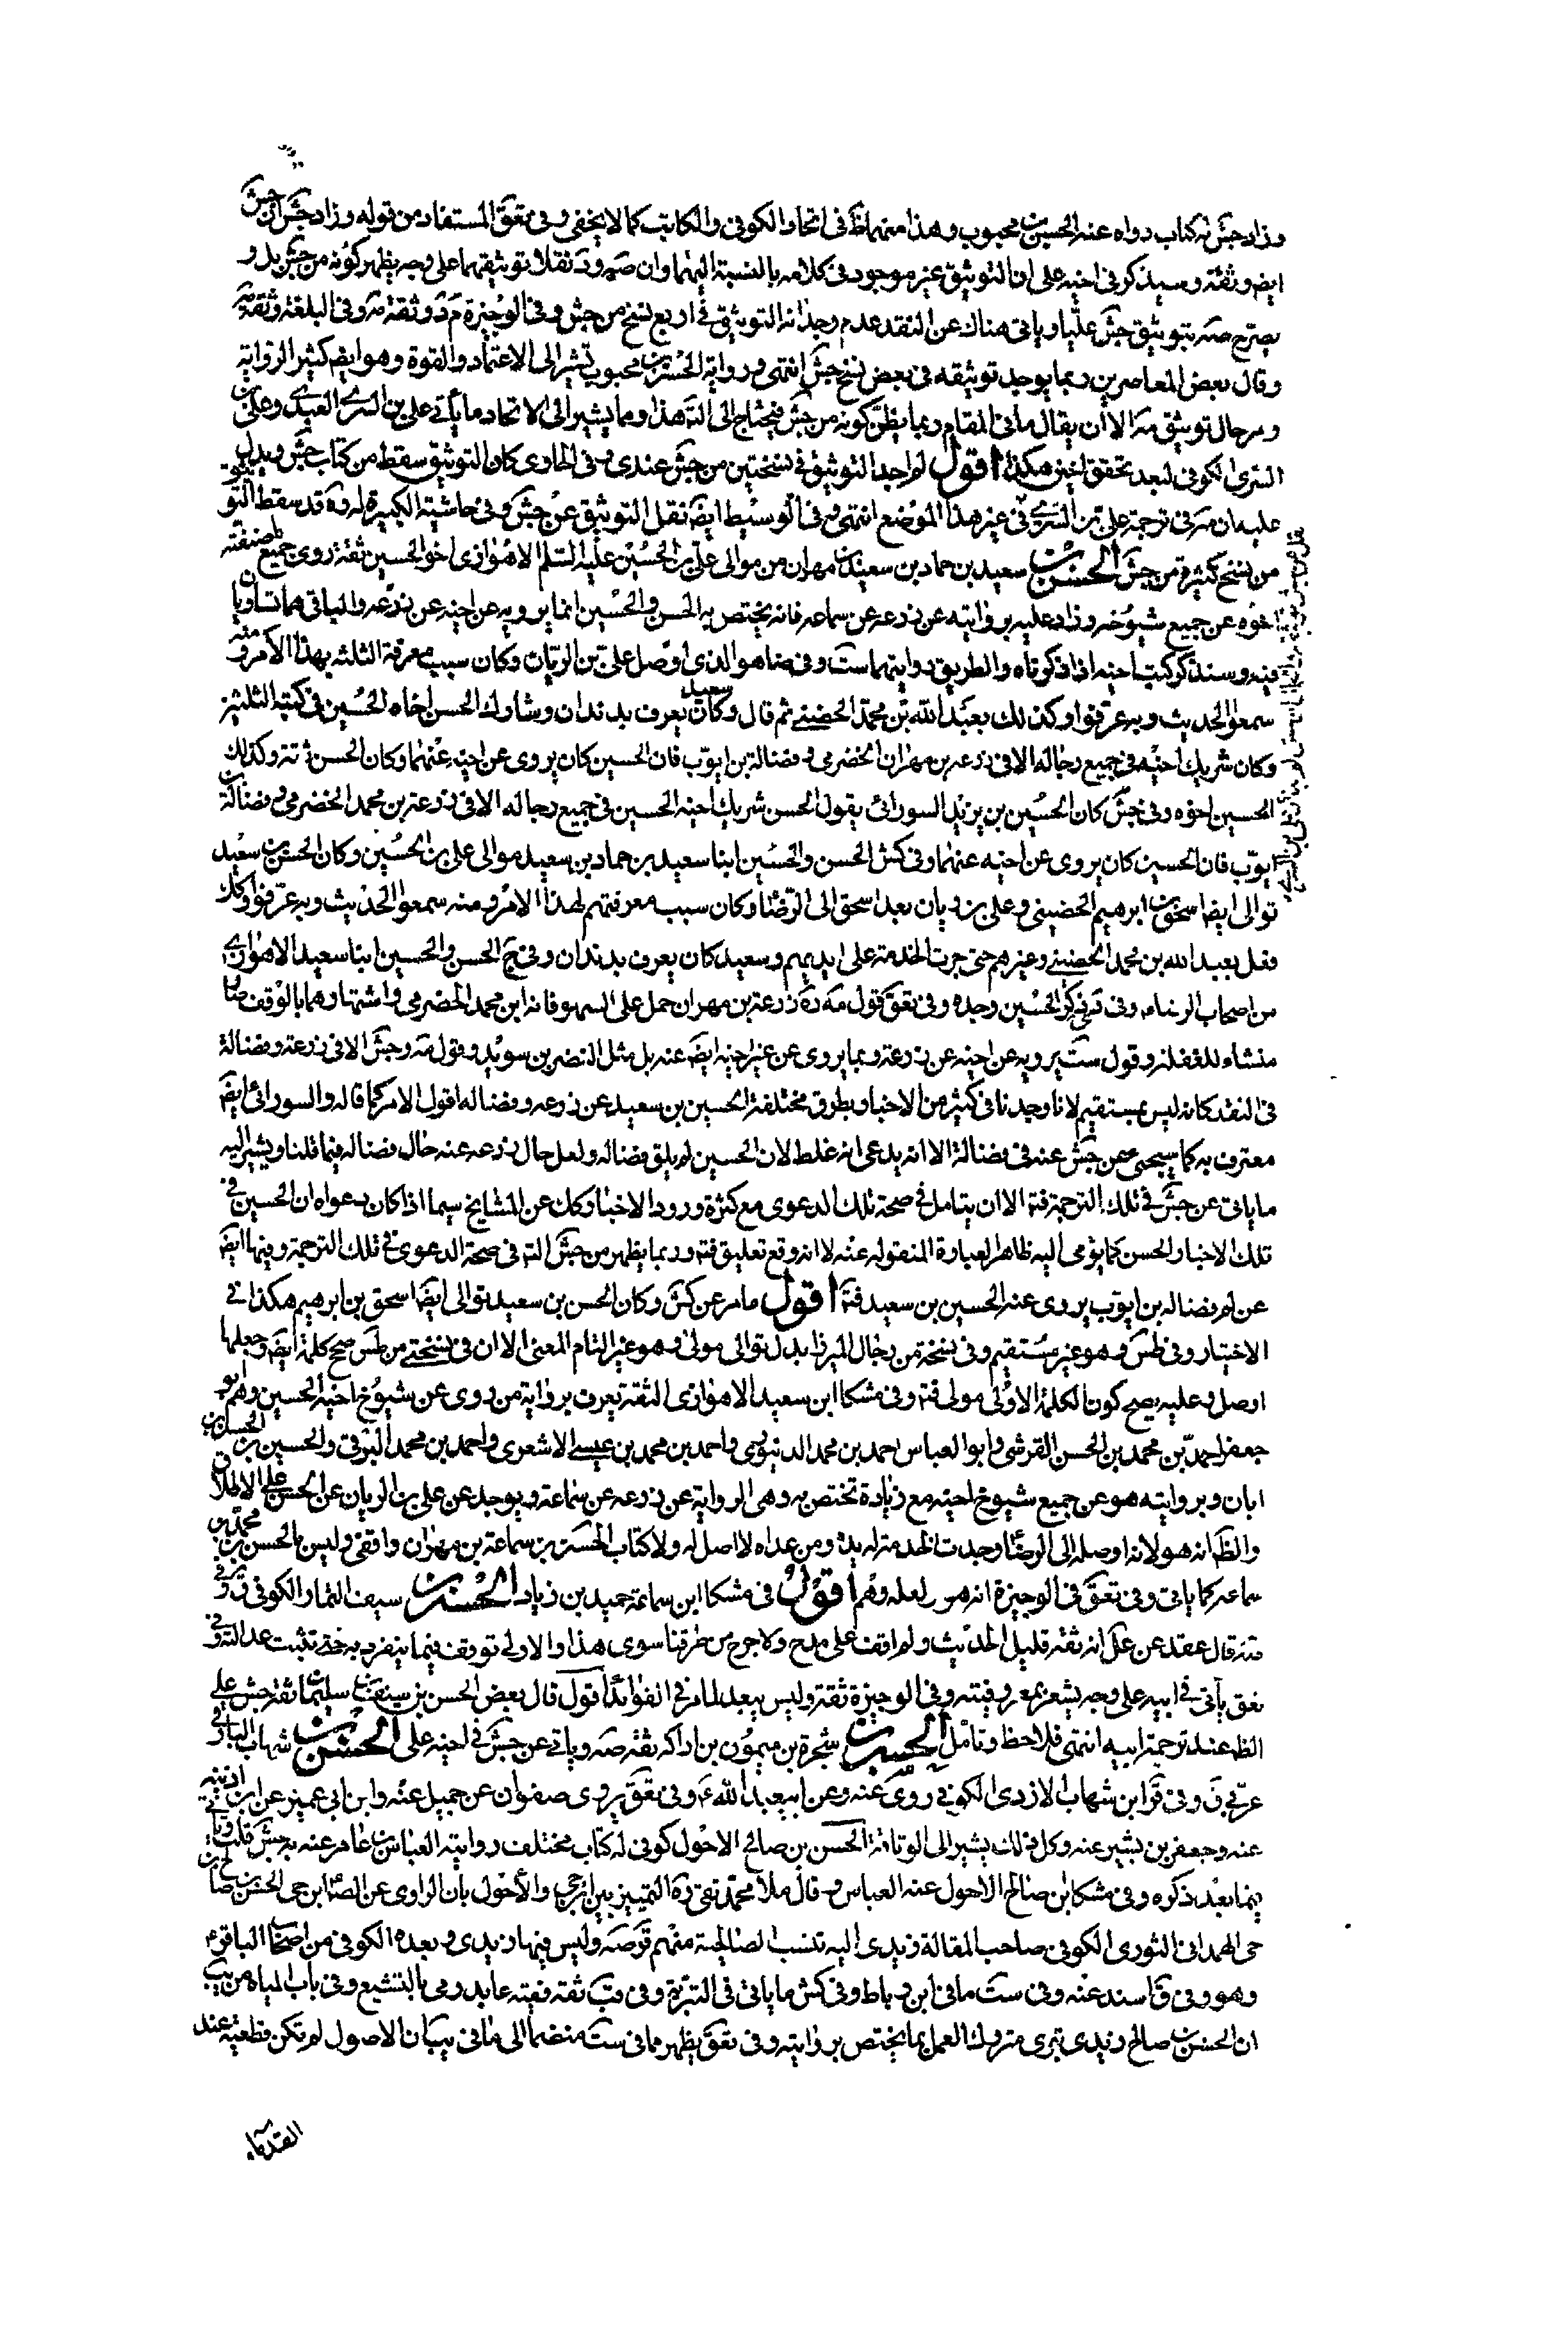 وزاد جش له كتاب رواه عنه الحسن بن محبوب وهذا منهما ظ في اتحاد الكوفي والكاتب كما لا يخفى وفي تعق المستفاد من قوله وزاد جش ان جش
ايض وثقه وسيذكر في اخيه علي ان التوثيق غير موجود في كلامه بالنسبة اليهما وان صه ود نقلا توثيقهما على وجه يظهر كونه من جش بل و
يصرح صه بتوثيق جش عليا وياتي هناك عن النقد عدم وجدانه التوثيق في اربع نسخ من جش وفي الوجيزة م د وثقه مه وفي البلغة وثقه مه
وقال بعض المعاصرين ربما يوجد توثيقه في بعض نسخ جش انتهى ورواية الحسن بن محبوب تشير الى الاعتماد والقوة وهو ايض كثير الرواية
ومر حال توثيق مه الا ان يقال ما في المقام ربما يظن كونه من جش فيحتاج الى التـ هذا ومما يشير الى الاتحاد ما يأتي علي بن السري العبدي وعلي بن
السري الكوفي لبعد تحقق اخين هكذا اقول لم اجد التوثيق في نسختين من جش عندي وفي الحاوي كان التوثيق سقط من كتاب جش ويدل
عليه ان مه في ترجمة علي بن السري في غير هذا الموضع انتهى وفي الوسيط ايض نقل التوثيق عن جش وفي حاشيته الكبيرة له ره قد سقط التوثيق
من نسخ كثيرة من جش الحسن بن سعيد بن حماد بن سعيد بن مهران من موالي علي بن الحسين عليه السلم الاهوازي اخو الحسين ثقة روى جميع ما صنفه
اخوه عن جميع شيوخه وزاد عليه بروايته عن زرعه عن سماعه فانه يختص به الحسن والحسين انما يرويه عن اخيه عن زرعه والباقي هما متساويان
فيه وسنذكر كتب اخيه اذا ذكرناه والطريق روايتهما ست وفي ضا هو الذي اوصل علي بن الريان وكان سبب معرفة الثلثة بهذا الامر ومنه
سمعوا الحديث وبه عرفوا وكذلك بعبد الله بن محمد الحضيني ثم قال وكان سعيد يعرف بدندان وشارك الحسن اخاه الحسين في كتبه الثلثين
وكان شريك اخيه في جميع رجاله الا في زرعه بن مهران الحضرمي وفضالة بن ايوب فان الحسين كان يروي عن اخيه عنهما وكان الحسن ثقة وكذلك
الحسين اخوه وفي جش كان الحسين بن يزيد السورائي يقول الحسن شريك اخيه الحسين في جميع رجاله الا في زرعة بن محمد الحضرمي وفضالة بن
ايوب فان الحسين كان يروي عن اخيه عنهما وفي كش الحسن والحسين ابنا سعيد بن حماد بن سعيد موالي علي بن الحسين وكان الحسن بن سعيد
توالى ايضا اسحق بن ابرهيم الحضيني وعلي بن ريان بعد اسحق الى الرضا وكان سبب معرفتهم لهذا الامر ومنه سمعوا الحديث وبه عرفوا وكك
فعل بعبد الله بن محمد الحضيني وغيرهم حتى جرت الخدمة على ايديهم وسعيد كان يعرف بدندان وفي ج الحسن والحسين ابنا سعيد الاهوازي
من اصحاب الرضاء وفي ذكر الحسين وحده وفي تعق قول مه ره زرعة بن مهران حمل على السهو فانه ابن محمد الحضرمي واشتهارهما بالوقف صار
منشاء للغفلة وقول ست يرويه عن اخيه عن زرعة وربما يروي عن غير اخيه ايض عنه بل مثل النضر بن سويد وقول مه وجش الا في زرعة وفضالة
في النقد كانه ليس بمستقيم لانا وجدنا في كثير من الاخبار بطرق مختلفة الحسين بن سعيد عن زرعه وفضاله اقول الامر كما قاله والسورائي ايض
معترف به كما سيجئ عن جش عنه في فضالة الا انه يدعي انه غلط لان الحسين لم يلق فضاله ولعل حال زرعه عنه حال فضاله فيما قلنا ويشير اليه
ما ياتي عن جش في تلك الترجمة فتـ الا ان يتامل في صحة تلك الدعوى مع كثرة ورود الاخبار وكك عن المشايخ سيما اذا كان دعواه ان الحسين في
تلك الاخبار الحسن كما يؤمي اليه ظاهر العبارة المنقوله عنه لا انه وقع تعليق فتـ وربما يظهر من جش التـ في صحة الدعوى في تلك الترجمة وفيها ايض
عن لم فضاله بن ايوب يروي عنه الحسين بن سعيد فتـ اقول ما مر عن كش وكان الحسن بن سعيد توالى ايضا اسحق بن ابرهيم هكذا في
الاختيار وفي طس وهو غير مستقيم وفي نسخة من رجال الميرزا بدل توالى مولى وهو غير التام المعنى الا ان في نسختي من طس صح كلمة ايض وجعلها
اوصل وعليه يصح كون الكلمة الاولى مولى فتـ وفي مشكا ابن سعيد الاهوازي الثقة يعرف برواية من روى عن شيوخ اخيه الحسين وهم ابو
جعفر احمد بن محمد بن الحسن القرشي وابو العباس احمد بن محمد الدينوري واحمد بن محمد بن عيسى الاشعري واحمد بن محمد البرقي والحسين بن الحسن بن
ابان وبروايته هو عن جميع شيوخ اخيه مع زيادة تختص به وهي الرواية عن زرعه عن سماعة ويوجد عن علي بن الريان عن الحسن على الاطلاق
والظ انه هو لانه اوصله الى الرضا وجدت الخدمة له بيد ومن عداه لا اصل له ولا كتاب الحسن بن سماعة بن مهران واقفي وليس بالحسن بن محمد بن
سماعه كما ياتي وفي تعق في الوجيزة انه هو ر لعله وهم اقول في مشكا ابن سماعة حميد بن زياد الحسن بن سيف التمار الكوفي ق وفي
صه قال عقد عن عل انه ثقة قليل الحديث ولم اقف على مدح ولا جرح من طرقنا سوى هذا والاولى توقف فيما ينفرد به حتى تثبت عدالته وفي
تعق يأتي في ابيه على وجه يشعر بمعروفيته وفي الوجيزة ثقة وليس ببعيد لما مر في الفوائد اقول قال بعض الحسن بن سيف بن سليمان ثقة جش على
الظ عند ترجمة ابيه انتهى فلاحظ وتامل الحسن بن شجرة بن ميمون بن اراكه ثقة صه وياتي عن جش في اخيه علي الحسن بن شهاب البارقي
عربي ق وفي قر ابن شهاب الازدي الكوفي روى عنه وعن ابي عبد الله ع وفي تعق يروي صفوان عن جميل عنه وابن ابي عمير عن ابن اذينه
عنه وجعفر بن بشير عنه وكل ذلك يشير الى الوثاقة الحسن بن صالح الاحول كوفي له كتاب مختلف روايته العباس بن عامر عنه به جش قلت وياتي
فيما بعد ذكره وفي مشكا بن صالح الاحول عنه العباس وقال ملا محمد تقي ره التمييز بين ابن حي والاحول بان الراوي عن الصا ابن حي الحسن بن صالح بن
حي الهمداني الثوري الكوفي صاحب المقالة زيدي اليه تنسب الصالحية منهم قر صه وليس فيها زيدي وبعده الكوفي من اصحاب الباقر ع
وهو وفي ق اسند عنه وفي ست ما في ابن رباط وفي كش ما ياتي في التبرية وفي قب ثقة فقيه عابد رمي بالتشيع وفي باب المياه من يب
ان الحسن بن صالح زيدي تبري متروك العمل بما يختص بروايته وفي تعق يظهر مما في ست منضما الى ما في بيان الاصول لم تكن قطعية عند
القدماء